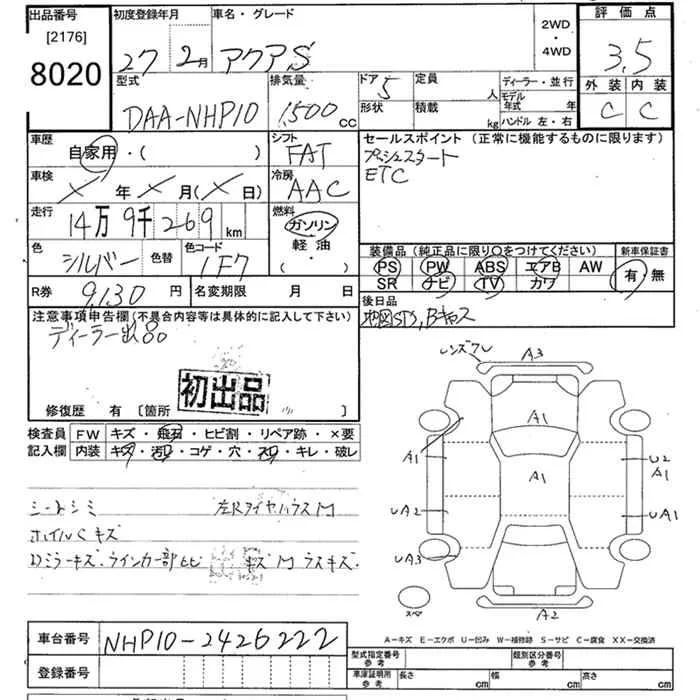 出品番号 初度登録年月 車名・グレード 2WD・4WD 評価点
[2176]
8020 27 2月 アクアS 3,5
型式 排気量 ドア 5 定員 人 ディーラー・並行 外装 内装
DAA-NHP10 1,500cc 形状 積載 kg モデル年式 年 C C
ハンドル 左・右
車歴 シフト セールスポイント (正常に機能するものに限ります)
自家用・( ) FAT プッシュスタート
車検 冷房 ETC
X 年 X 月(X 日) AAC
走行 燃料
14万 9千 269 km ガソリン
軽油
( ・ )
色 色替 色コード 装備品(純正品に限り○をつけてください) 新車保証書
シルバー 1F7 PS PW ABS エアB AW 有 無
SR ナビ TV カワ
R券 9,130 円 名変期限 月 日 後日品
注意事項申告欄(不具合内容等は具体的に記入して下さい)
ディーラー出品
初出品
修復歴 有 [箇所 ]
検査員 FW キズ・飛石・ヒビ割・リペア跡・×要
記入欄 内装 キズ・汚れ・コゲ・穴・スレ・キレ・破レ
シートシミ 左Rタイヤハウス M
ホイルCキズ
レンズワレ A3
A1
A1 A1 U2
A1
UA2 UA1
UA3
スペア A2
A-キズ E-エクボ U-凹み W-補修跡 S-サビ C-腐食 XX-交換済
車台番号 NHP10-2426222
登録番号
型式指定番号 参考 類別区分番号 参考
車庫証明用 参考 長さ cm 幅 cm 高さ cm